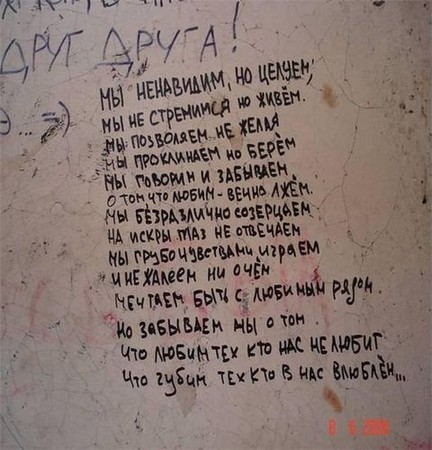 ДРУГ ДРУГА!
Э ... =)
МЫ НЕНАВИДИМ, НО ЦЕЛУЕМ,
МЫ НЕ СТРЕМИМСЯ НО ЖИВЁМ.
МЫ ПОЗВОЛЯЕМ НЕ ЖЕЛАЯ
МЫ ПРОКЛИНАЕМ НО БЕРЁМ
МЫ ГОВОРИМ И ЗАБЫВАЕМ
О ТОМ, ЧТО ЛЮБИМ - ВЕЧНО ЛЖЁМ.
МЫ БЕЗРАЗЛИЧНО СОЗЕРЦАЕМ
НА ИСКРЫ ГЛАЗ НЕ ОТВЕЧАЕМ
МЫ ГРУБО ЧУВСТВАМИ ИГРАЕМ
И НЕ ЖАЛЕЕМ НИ О ЧЁМ
МЕЧТАЕМ БЫТЬ С ЛЮБИМЫМ РЯДОМ.
НО ЗАБЫВАЕМ МЫ О ТОМ.
ЧТО ЛЮБИМ ТЕХ КТО НАС НЕ ЛЮБИТ
ЧТО ГУБИМ ТЕХ КТО В НАС ВЛЮБЛЁН...